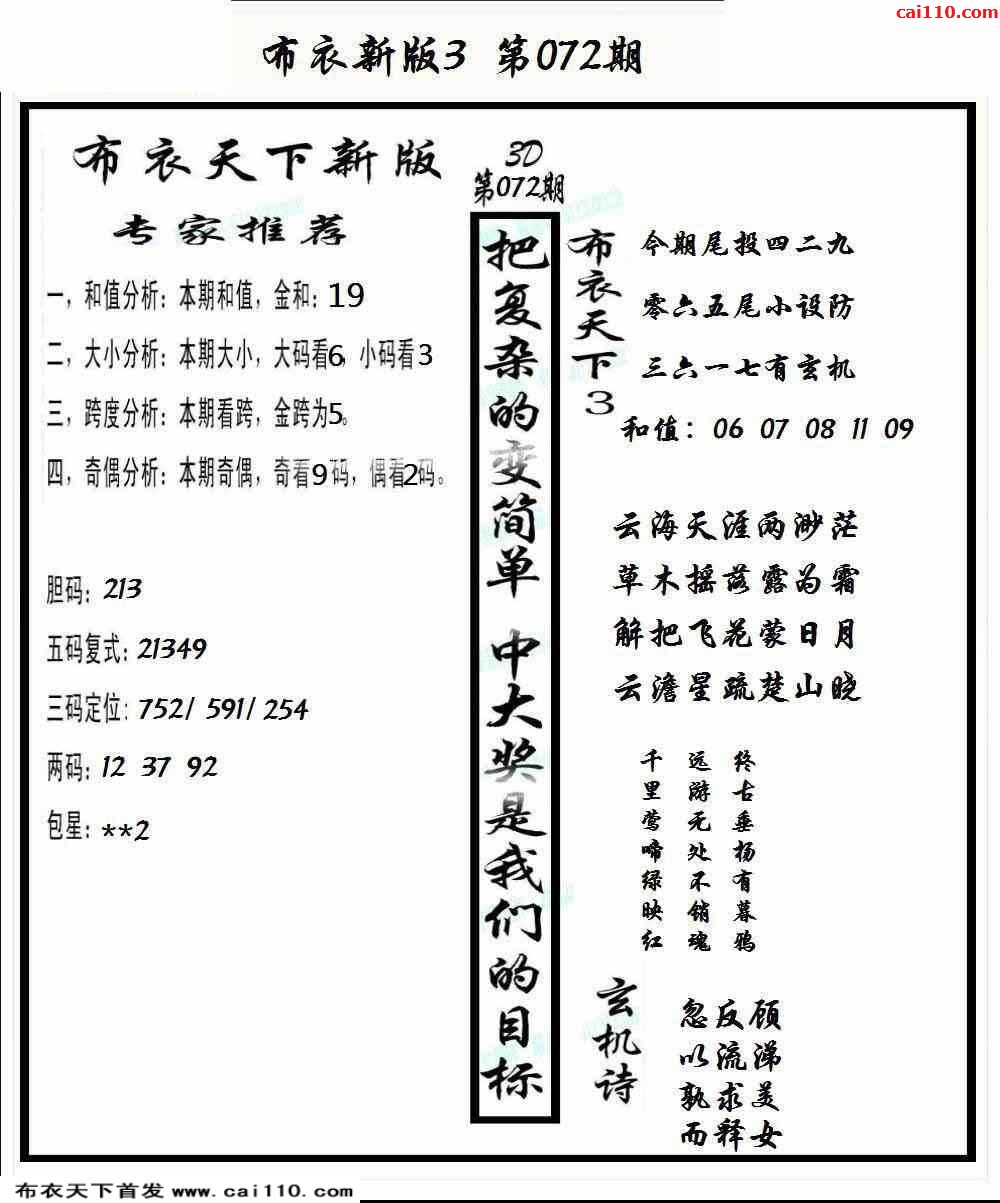 cai110.com
布衣新版3 第072期
布衣天下新版
专家推荐
一，和值分析：本期和值，金和：19
二，大小分析：本期大小，大码看6，小码看3
三，跨度分析：本期看跨，金跨为5。
四，奇偶分析：本期奇偶，奇看9码，偶看2码。
胆码：213
五码复式：21349
三码定位：752/ 591/ 254
两码：12 37 92
包星：**2
3D
第072期
把复杂的变简单 中大奖是我们的目标
布衣天下3
今期尾投四二九
零六五尾小设防
三六一七有玄机
和值：06 07 08 11 09
云海天涯两渺茫
草木摇落露为霜
解把飞花蒙日月
云澹星疏楚山晓
千里莺啼绿映红
远游无处不销魂
终古垂杨有暮鸦
玄机诗
忽反顾
以流涕
孰求美
而释女
布衣天下首发 www.cai110.com